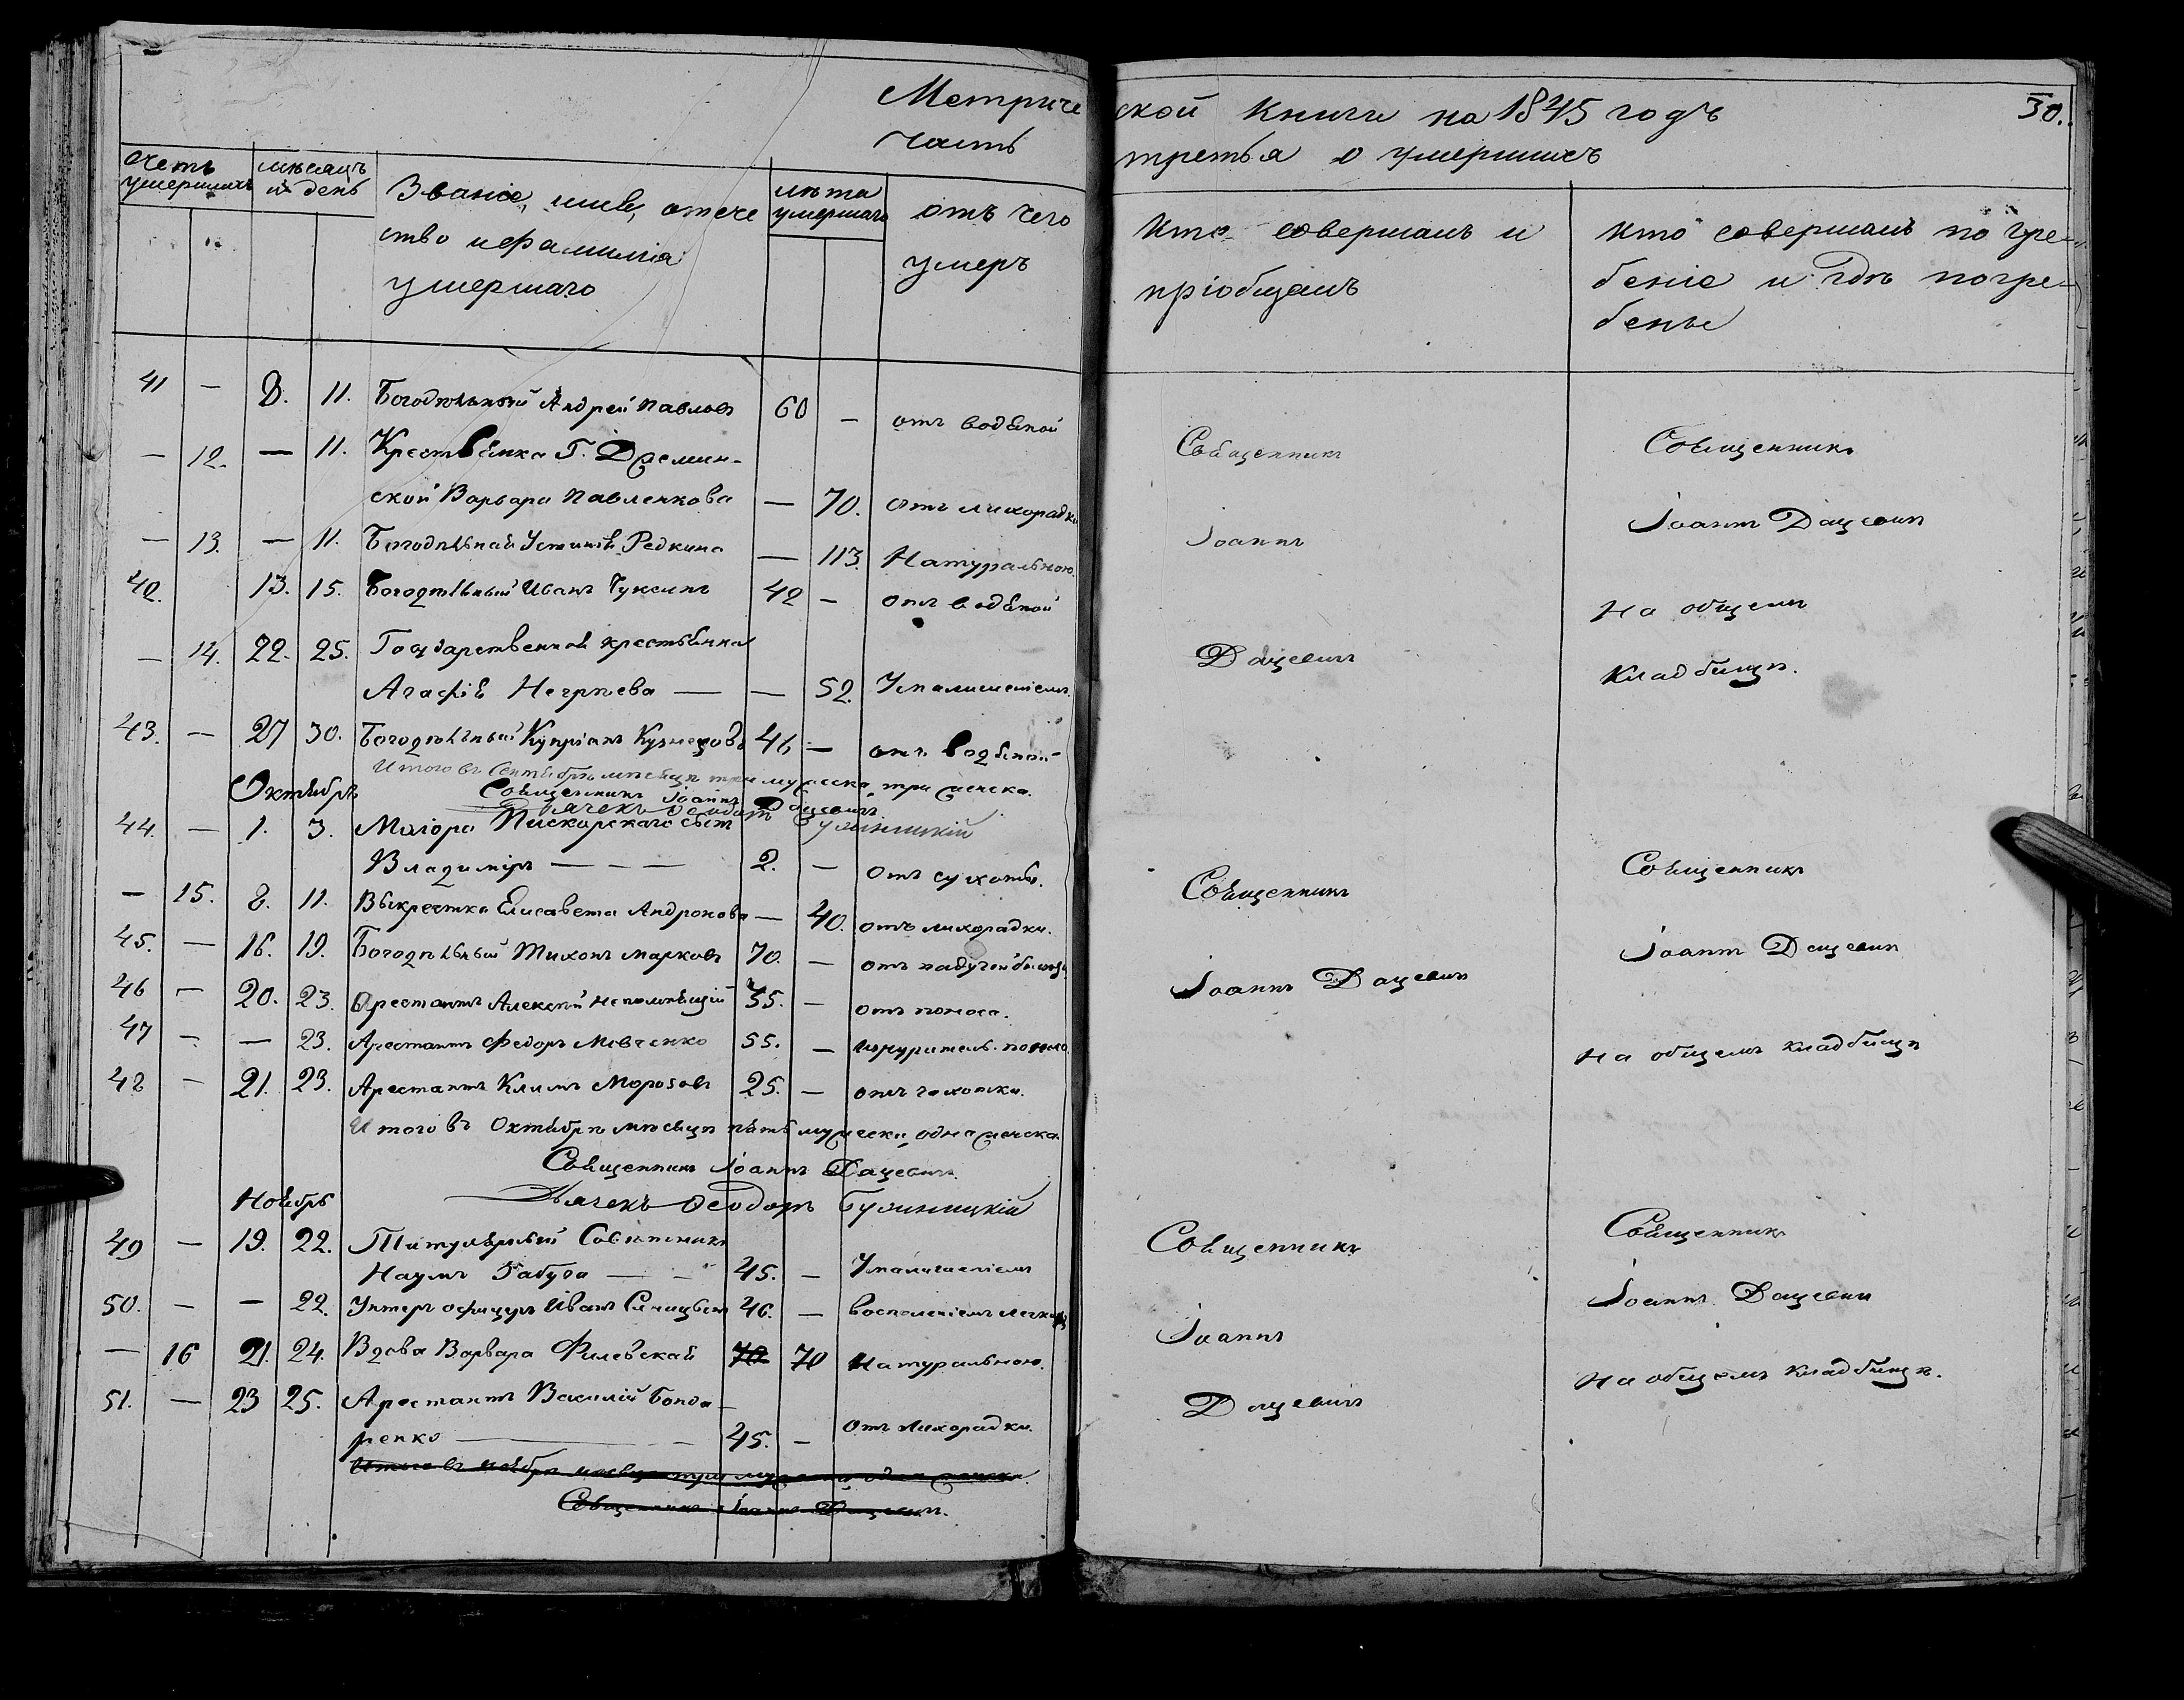 Метрической Книги на 1845 годъ
30.
часть третья о умершихъ
счетъ умершихъ
мѣсяцъ и день
Званіе, имя, отече
ство и фамилія
умершаго
лѣта умершаго
отъ чего
умеръ
Кто совершалъ и
пріобщалъ
Кто совершалъ погре-
беніе и гдѣ погре-
бены
41 — 8. 11. Богодѣльный Андрей Павловъ 60 — отъ водяной
— 12. — 11. Крестьянка Г.
ской Варвара Павленкова — 70. отъ лихорадки
— 13. — 11. Богодѣльная Устинія Редкина — 113. Натуральною.
42. 13. 15. Богодѣльный Иванъ 42 — отъ водяной
— 14. 22. 25. Государственная крестьянка
Агафія Негрѣева — — 52.
43. — 27 30. Богодѣльный Купріанъ Кузнецовъ 46 — отъ водяной
Итого въ Сентябрѣ мѣсяцѣ три мужеска, три женска.
Священникъ Іоаннъ Дацевичъ
Дячекъ Ѳеодоръ
Священникъ
Іоаннъ
Дацевичъ
Священникъ
Іоаннъ Дацевичъ
На общемъ
Кладбищѣ.
Октябрь
44. — 1. 3. Маіора Пискарскаго сынъ
Владиміръ — — — 2. — отъ сухоты.
— 15. 8. 11. Выкрестка Елисавета Андронова — 40. отъ лихорадки.
45. — 16. 19. Богодѣльный Тихонъ Марковъ 70. — отъ падучей
46 — 20. 23. Арестантъ Алексѣй Непомнящій 35. — отъ поноса.
47 — — 23. Арестантъ Федоръ Мовченко 55. —
48 — 21. 23. Арестантъ Климъ Морозовъ 25. — отъ чахотки.
Итого въ Октябрѣ мѣсяцѣ пять мужеска, одна женска.
Священникъ Іоаннъ Дацевичъ.
Дячекъ Ѳеодоръ
Священникъ
Іоаннъ Дацевичъ
Священникъ
Іоаннъ Дацевичъ
На общемъ кладбищѣ
Ноябрь
49 — 19. 22. Титулярный Совѣтникъ
Наумъ — — 45. —
50. — — 22. Унтеръ офицеръ Иванъ 46. — воспаленіемъ легкихъ
— 16 21. 24. Вдова Варвара Филевская 70 70 Натуральною.
51. — 23 25. Арестантъ Василій Бонда-
ренко — 45. — отъ лихорадки.
Итого въ Ноябрѣ мѣсяцѣ три мужеска, одна женска.
Священникъ Іоаннъ Дацевичъ.
Священникъ
Іоаннъ
Дацевичъ
Священникъ
Іоаннъ Дацевичъ
На общемъ кладбищѣ.